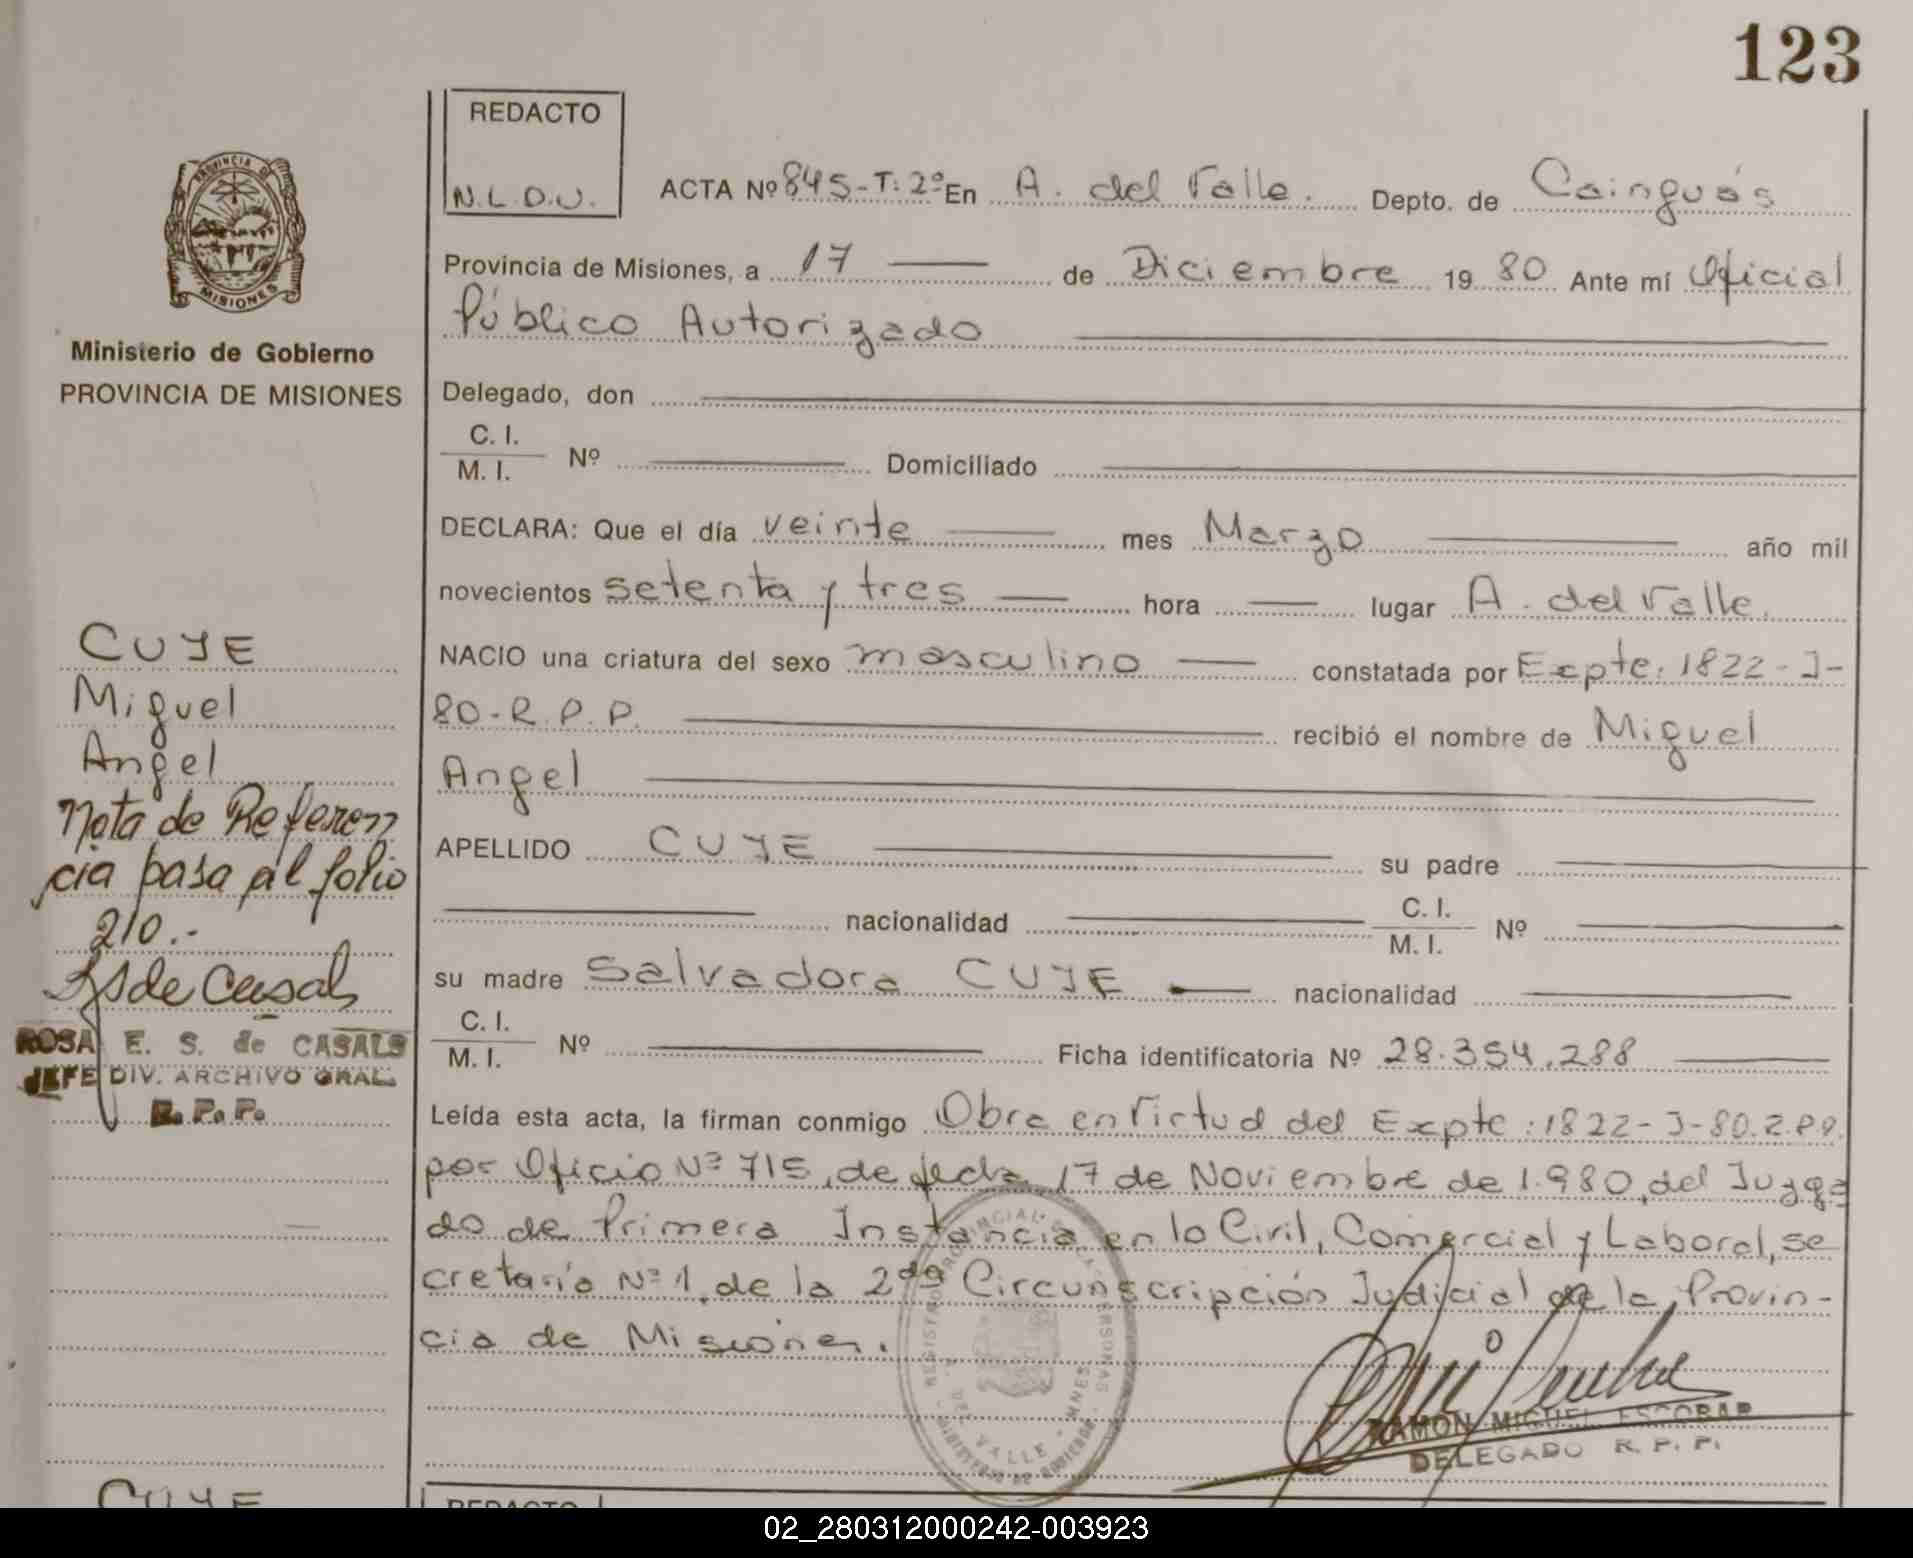 123
REDACTO
N.L.D.U.
ACTA Nº 845-T: 2º En A. del Valle. Depto. de Cainguás
Provincia de Misiones, a 17 de Diciembre 19 80 Ante mí Oficial
Público Autorizado
Delegado, don
C. I.
M. I. Nº Domiciliado
DECLARA: Que el día veinte mes Marzo año mil
novecientos setenta y tres hora lugar A. del Valle.
NACIO una criatura del sexo masculino constatada por Expte. 1822-J-
80-R.P.P. recibió el nombre de Miguel
Angel
APELLIDO CUYE su padre
nacionalidad C. I.
M. I. Nº
su madre Salvadora CUYE nacionalidad
C. I.
M. I. Nº Ficha identificatoria Nº 28.354.288
Leída esta acta, la firman conmigo Obra en Virtud del Expte: 1822-J-80.R.P.P.
por Oficio Nº 715, de fecha 17 de Noviembre de 1.980, del Juzga
do de Primera Instancia en lo Civil, Comercial y Laboral, se
cretaría Nº 1, de la 2da Circunscripción Judicial de la Provin-
cia de Misiones.
RAMON MIGUEL ESCOBAR
DELEGADO R. P. P.
REGISTRO PROVINCIAL DE LAS PERSONAS
A. DEL VALLE - MNES.
MINISTERIO DE GOBIERNO
PROVINCIA DE
MISIONES
Ministerio de Gobierno
PROVINCIA DE MISIONES
CUYE
Miguel
Angel
Nota de Referen
cia pasa al folio
210.-
S de Casals
ROSA E. S. de CASALS
JEFE DIV. ARCHIVO GRAL.
R. P. P.
CUYE
REDACTO
02_280312000242-003923